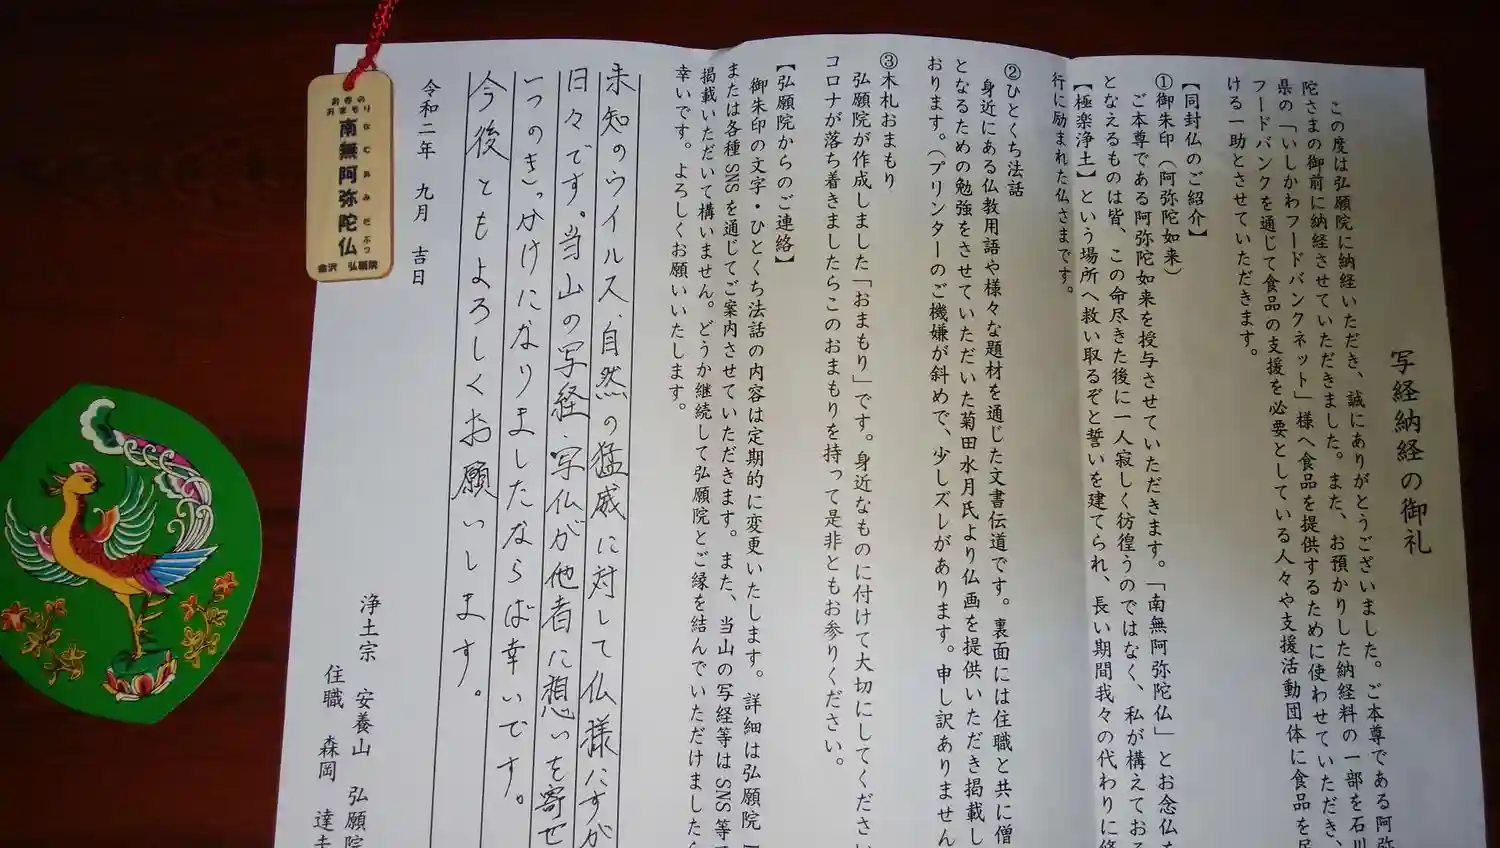 写経納経の御礼
この度は弘願院に納経いただき、誠にありがとうございました。ご本尊である阿弥
陀さまの御前に納経させていただきました。また、お預かりした納経料の一部を石川
県の「いしかわフードバンクネット」様へ食品を提供するために使わせていただき、
フードバンクを通じて食品の支援を必要としている人々や支援活動団体に食品を
ける一助とさせていただきます。
【同封仏のご紹介】
①御朱印（阿弥陀如来）
ご本尊である阿弥陀如来を授与させていただきます。「南無阿弥陀仏」とお念仏を
となえるものは皆、この命尽きた後に一人寂しく彷徨うのではなく、私が構えてお
【極楽浄土】という場所へ救い取るぞと誓いを建てられ、長い期間我々の代わりに修
行に励まれた仏さまです。
②ひとくち法話
身近にある仏教用語や様々な題材を通じた文書伝道です。裏面には住職と共に僧
となるための勉強をさせていただいた菊田水月氏より仏画を提供いただき掲載し
おります。（プリンターのご機嫌が斜めで、少しズレがあります。申し訳ありません
③木札おまもり
弘願院が作成しました「おまもり」です。身近なものに付けて大切にしてください
コロナが落ち着きましたらこのおまもりを持って是非ともお参りください。
【弘願院からのご連絡】
御朱印の文字・ひとくち法話の内容は定期的に変更いたします。詳細は弘願院
または各種SNSを通じてご案内させていただきます。また、当山の写経等はSNS等
掲載いただいて構いません。どうか継続して弘願院とご縁を結んでいただけましたら
幸いです。よろしくお願いいたします。
未知のウイルス、自然の猛威に対して仏様にすが
日々です。当山の写経・写仏が他者に想いを寄せ
一つのきっかけになりましたならば幸いです。
今後ともよろしくお願いします。
令和二年 九月 吉日
浄土宗 安養山 弘願院
住職 森岡 達
お寺の
おまもり
南無阿弥陀仏
なむあみだぶつ
金沢 弘願院